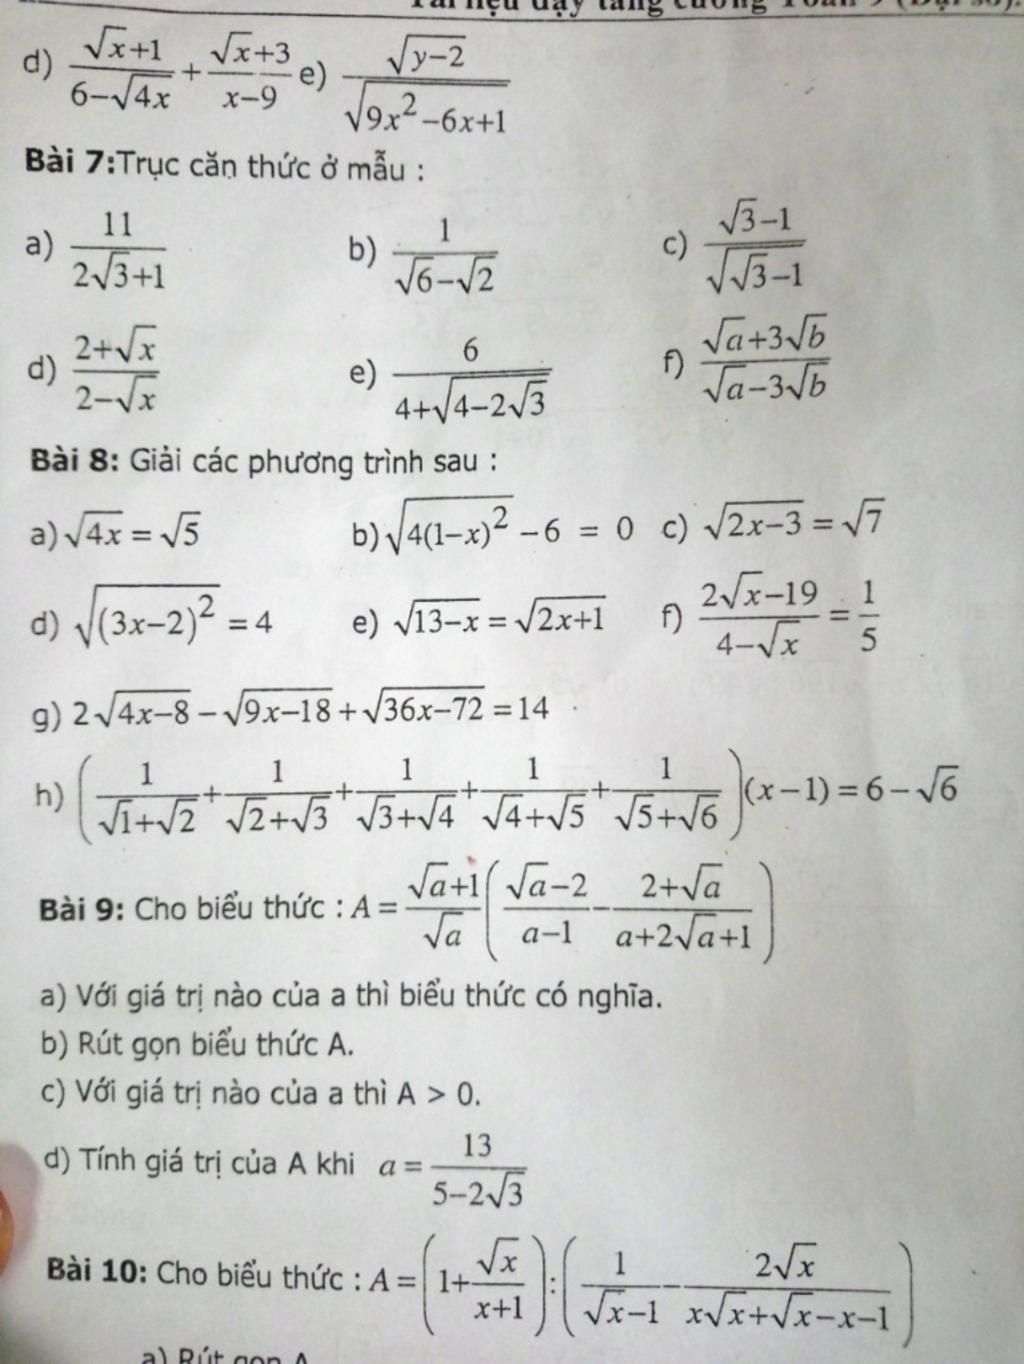 Tài liệu dạy tăng cường Toán 9 (Đại số).
d) \frac{\sqrt{x}+1}{6-\sqrt{4x}} + \frac{\sqrt{x}+3}{x-9} e) \frac{\sqrt{y-2}}{\sqrt{9x^2-6x+1}}
Bài 7:Trục căn thức ở mẫu :
a) \frac{11}{2\sqrt{3}+1} b) \frac{1}{\sqrt{6}-\sqrt{2}} c) \frac{\sqrt{3}-1}{\sqrt{\sqrt{3}-1}}
d) \frac{2+\sqrt{x}}{2-\sqrt{x}} e) \frac{6}{4+\sqrt{4-2\sqrt{3}}} f) \frac{\sqrt{a}+3\sqrt{b}}{\sqrt{a}-3\sqrt{b}}
Bài 8: Giải các phương trình sau :
a) \sqrt{4x} = \sqrt{5} b) \sqrt{4(1-x)^2} - 6 = 0 c) \sqrt{2x-3} = \sqrt{7}
d) \sqrt{(3x-2)^2} = 4 e) \sqrt{13-x} = \sqrt{2x+1} f) \frac{2\sqrt{x}-19}{4-\sqrt{x}} = \frac{1}{5}
g) 2\sqrt{4x-8} - \sqrt{9x-18} + \sqrt{36x-72} = 14
h) \left(\frac{1}{\sqrt{1}+\sqrt{2}}+\frac{1}{\sqrt{2}+\sqrt{3}}+\frac{1}{\sqrt{3}+\sqrt{4}}+\frac{1}{\sqrt{4}+\sqrt{5}}+\frac{1}{\sqrt{5}+\sqrt{6}}\right)(x-1) = 6-\sqrt{6}
Bài 9: Cho biểu thức : A = \frac{\sqrt{a}+1}{\sqrt{a}}\left(\frac{\sqrt{a}-2}{a-1}-\frac{2+\sqrt{a}}{a+2\sqrt{a}+1}\right)
a) Với giá trị nào của a thì biểu thức có nghĩa.
b) Rút gọn biểu thức A.
c) Với giá trị nào của a thì A > 0.
d) Tính giá trị của A khi a = \frac{13}{5-2\sqrt{3}}
Bài 10: Cho biểu thức : A = \left(1+\frac{\sqrt{x}}{x+1}\right):\left(\frac{1}{\sqrt{x}-1}-\frac{2\sqrt{x}}{x\sqrt{x}+\sqrt{x}-x-1}\right)
a) Rút gọn A